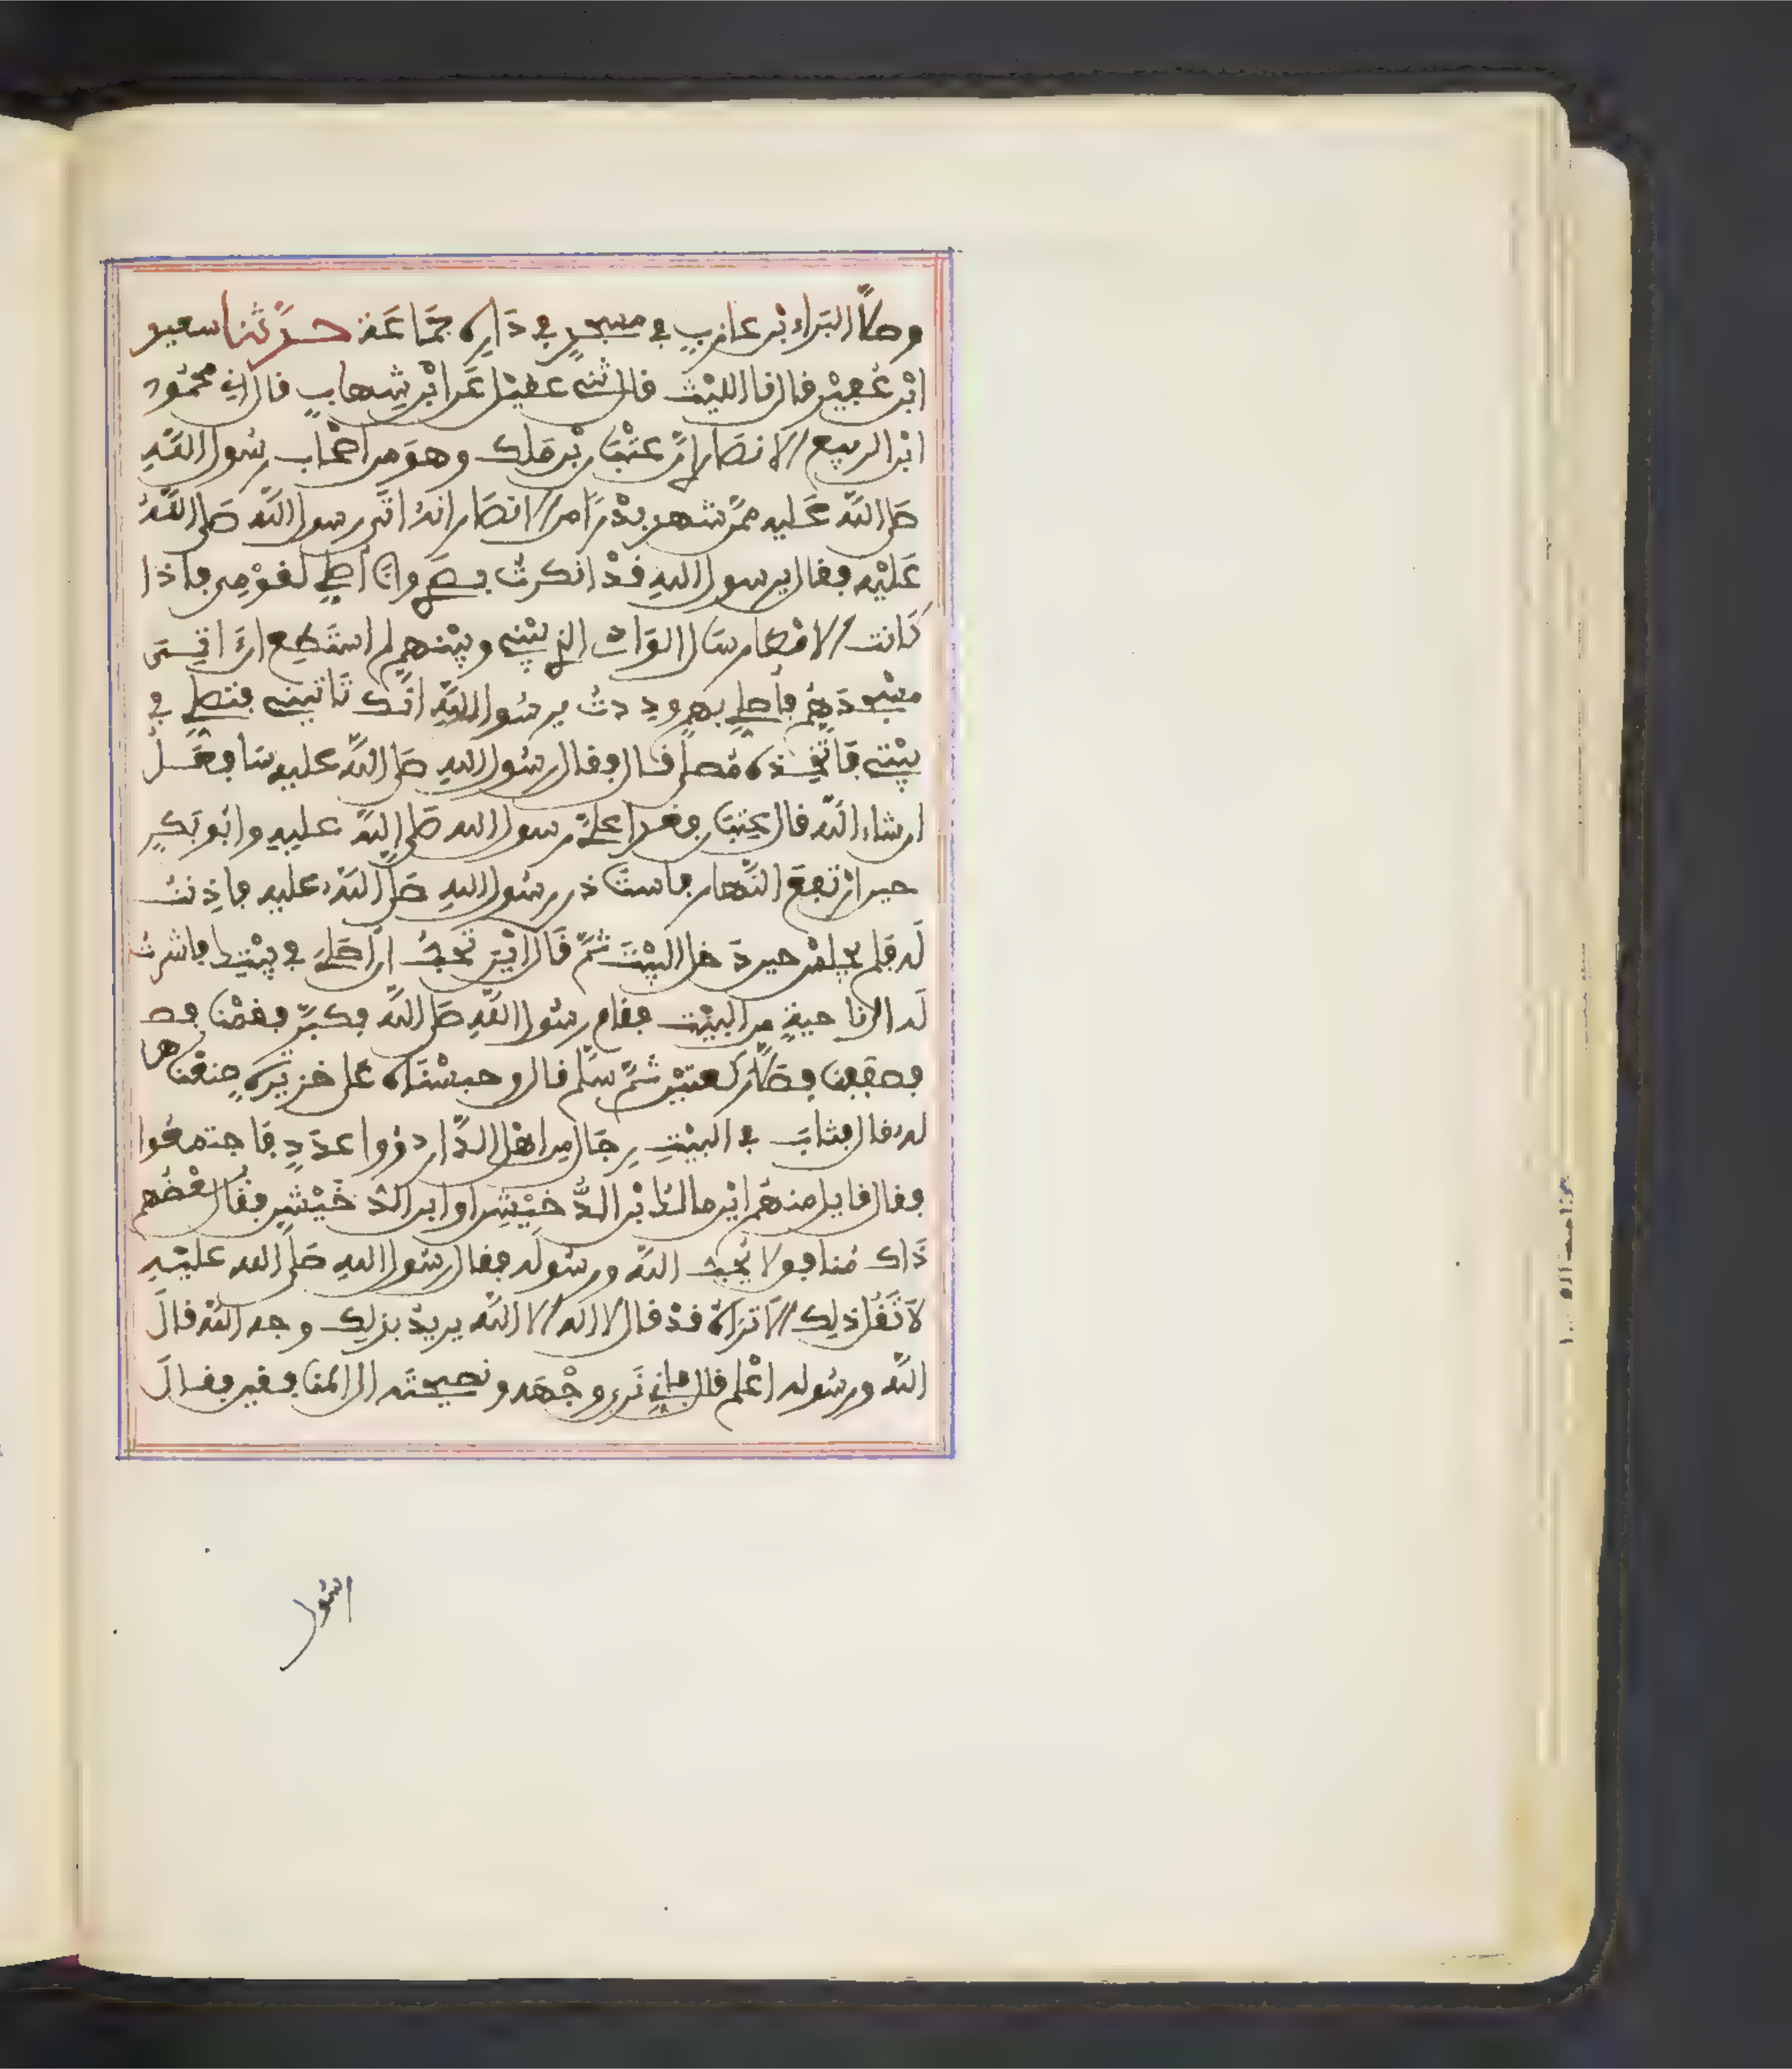 وصلّى البَراء بْن عازبٍ في مسجدٍ في دَارِه جَمَاعَة حدّثنا سعيد
ابْن عُفيْر قال نا الليْث قال ثنى عقيْل عَن ابْن شِهابٍ قال اني محمُود
ابْن الربيع الانصَاري انّ عتْبَان بْن مَلك وهوَ من اصْحاب رسُول اللَّهِ
صَلى اللَّه عَليه ممّن شهد بدْرًا من الانصَار انهُ اتَى رسول اللَّه صَلى اللَّهُ
عَليْه فقال يرسول اللهِ قدْ انكرتُ بصَري وانَا اصلي لقوْمِى فاذا
كَانت الامْطار سَال الوَادِي الذي بيْنى وبيْنهم لم استَطِع انَ اتى
مسْجدَهُمْ فأصلي بهم وددتُ يرسُول اللَّهِ انّك تَاتينى فتصلي في
بيْتى فَاتّخِذه مُصلى قال فقال رسُول اللهِ صَلى اللَّه عليه سَافعَلُ
ان شاء اللَّه قال عِتبَان فغدا عليّ رسول الله صَلى اللَّهُ عليه وابُو بَكرٍ
حين ارْتفعَ النَّهار فاستَاذن رسُول اللهِ صَلى اللَّهُ عليه فاذِنتُ
لَه فلم يجلسْ حين دَخل البيْتَ ثمَّ قَال ايْنَ تُحبُّ انْ اصَليَ في بيْتِك فاشرتُ
لَه الى ناحيةٍ من البيْت فقام رسُول اللَّهِ صَلى اللَّهُ فكبّر فقمْنَا فص
فصففنا فصَلّى ركعتيْن ثمَّ سلّم قال وحبسْنَاه عَلى خزيرَةٍ صنعْنَاها
له قال فثابَ في البيْتِ رِجَال مِن اهْل الدَّار ذوُوا عدَدٍ فَاجتمعُوا
فقال قايل منهُم ايْن مالكُ ابْن الدُّخَيْشِن او ابن الدُّخَيْشنِ فقَال بعْضُهم
ذَاك مُنافق لا يُحبُّ اللَّه ورسُولَه فقال رسُول اللهِ صَلى الله عليْهِ
لاَ تَقُل ذلِك الاَ تراهُ قدْ قال لا اله الا اللَّه يريدُ بذلِك وجه اللَّهْ قالَ
اللَّه ورسُوله اعْلم قال فاني نَرى وجْهَه ونصيحتَه الى المنَافقين فقالَ
رسُول